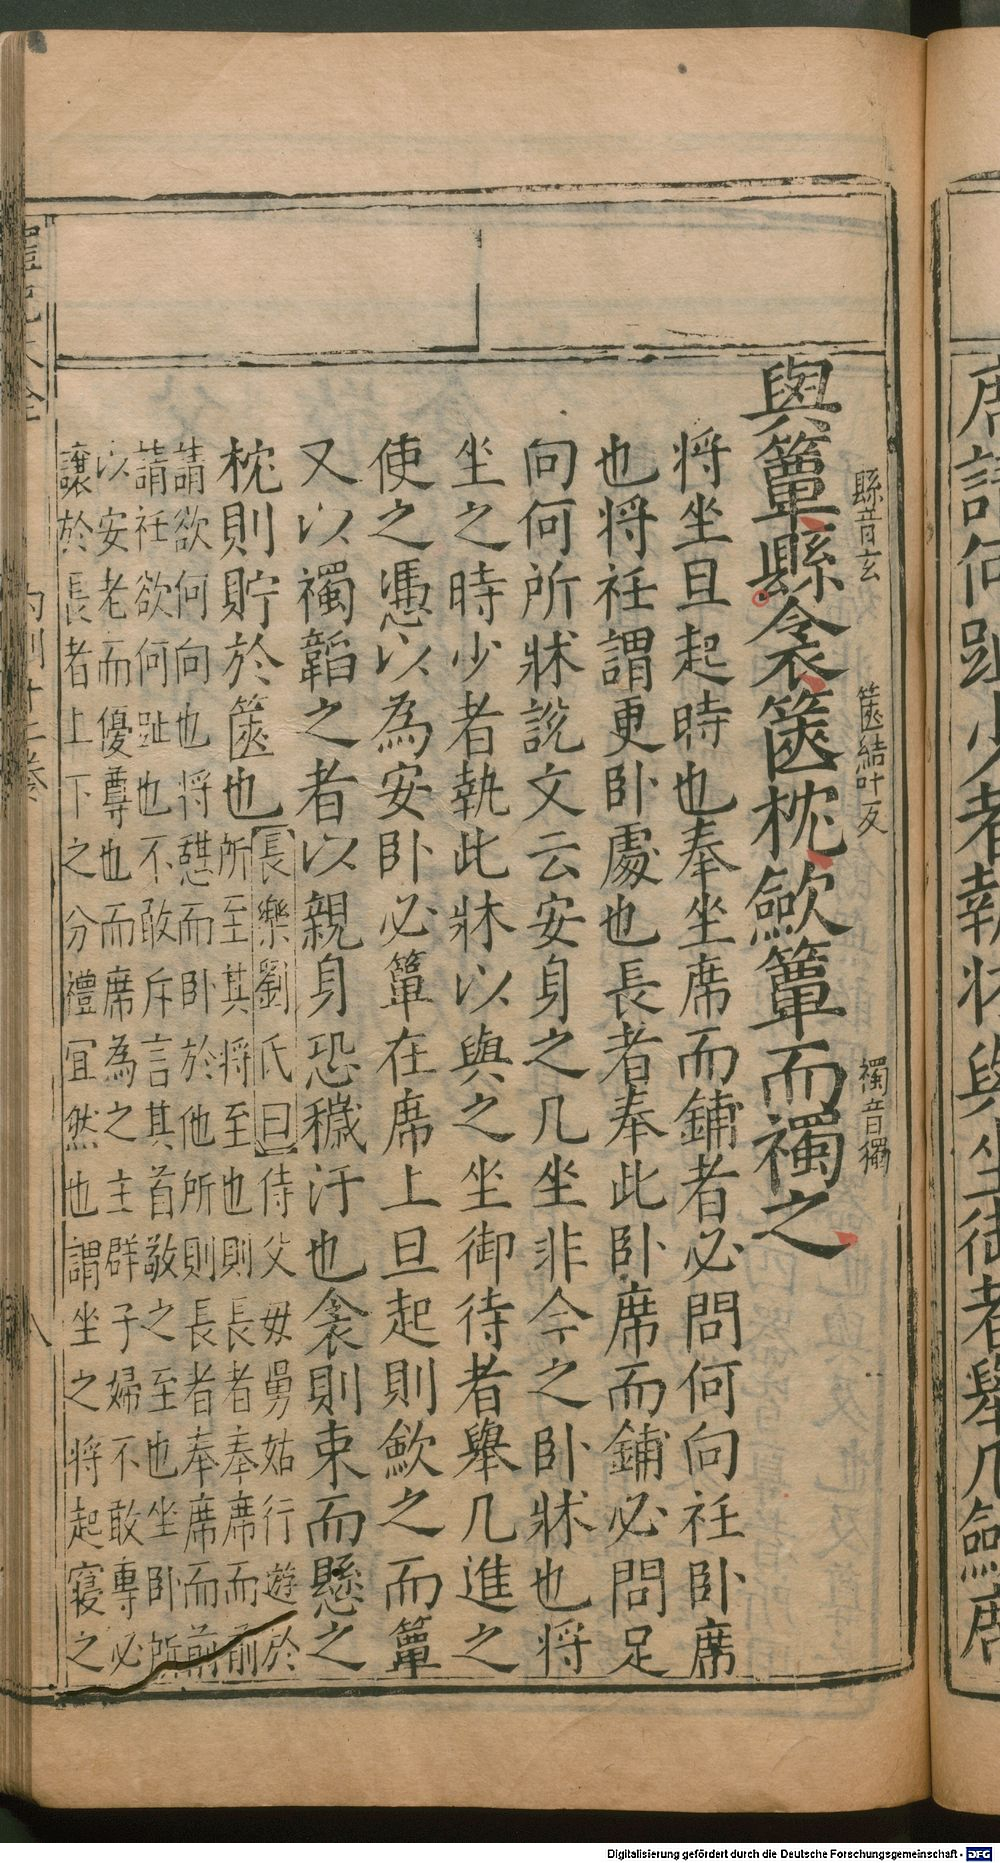 席請何趾少者執牀與坐御者舉几斂席
縣音玄
篋結叶反
襡音獨
與簟縣衾篋枕斂簟而襡之
将坐旦起時也奉坐席而鋪者必問何向衽卧席
也将衽謂更卧處也長者奉此卧席而鋪必問足
向何所牀說文云安身之几坐非今之卧牀也将
坐之時少者執此牀以與之坐御待者舉几進之
使之憑以為安卧必簟在席上旦起則斂之而簟
又以襡韜之者以親身恐穢汙也衾則束而懸之
枕則貯於篋也
長樂劉氏曰侍父毋舅姑行遊於
所至其将至也則長者奉席而前
請欲何向也将憇而卧於他所則長者奉席而前
請衽欲何趾也不敢斥言其首敬之至也坐卧所
以安老而優尊也而席為之主群子婦不敢專必
讓於長者上下之分禮宜然也謂坐之将起寢之
八
Digitalisierung gefördert durch die Deutsche Forschungsgemeinschaft - DFG